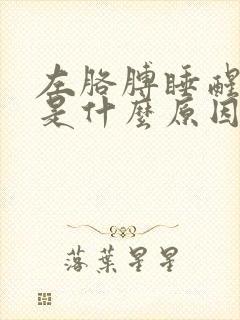 左胳膊睡醒
是什麼原因
落葉星星